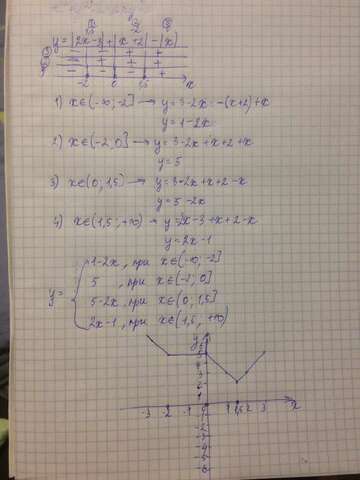 ① 1,5 ② -2 ③ 0
y = |2x-3| + |x+2| - |x|
① - - - +
② - + + +
③ - - + +
-2 0 1,5 x
1) x∈(-∞;-2] → y = 3-2x-(x+2)+x
y = 1-2x
2) x∈(-2,0] → y = 3-2x+x+2+x
y = 5
3) x∈(0;1,5] → y = 3-2x+x+2-x
y = 5-2x
4) x∈(1,5; +∞) → y = 2x-3+x+2-x
y = 2x-1
1-2x, при x∈(-∞,-2]
y = 5, при x∈(-2;0]
5-2x, при x∈(0,1,5]
2x-1, при x∈(1,5, +∞)
y
6
5
4
3
2
1
-3 -2 -1 0 1 1,5 2 3 x
-1
-2
-3
-4
-5
-6